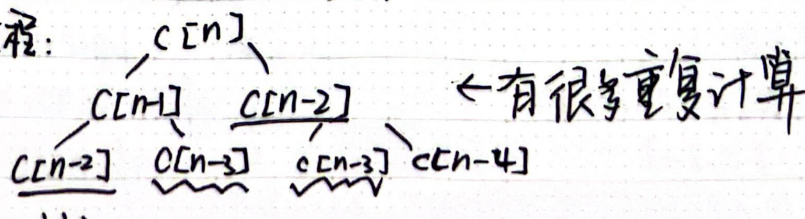 程:
C[n]
C[n-1] C[n-2] ←有很多重复计算
C[n-2] C[n-3] c[n-3] c[n-4]